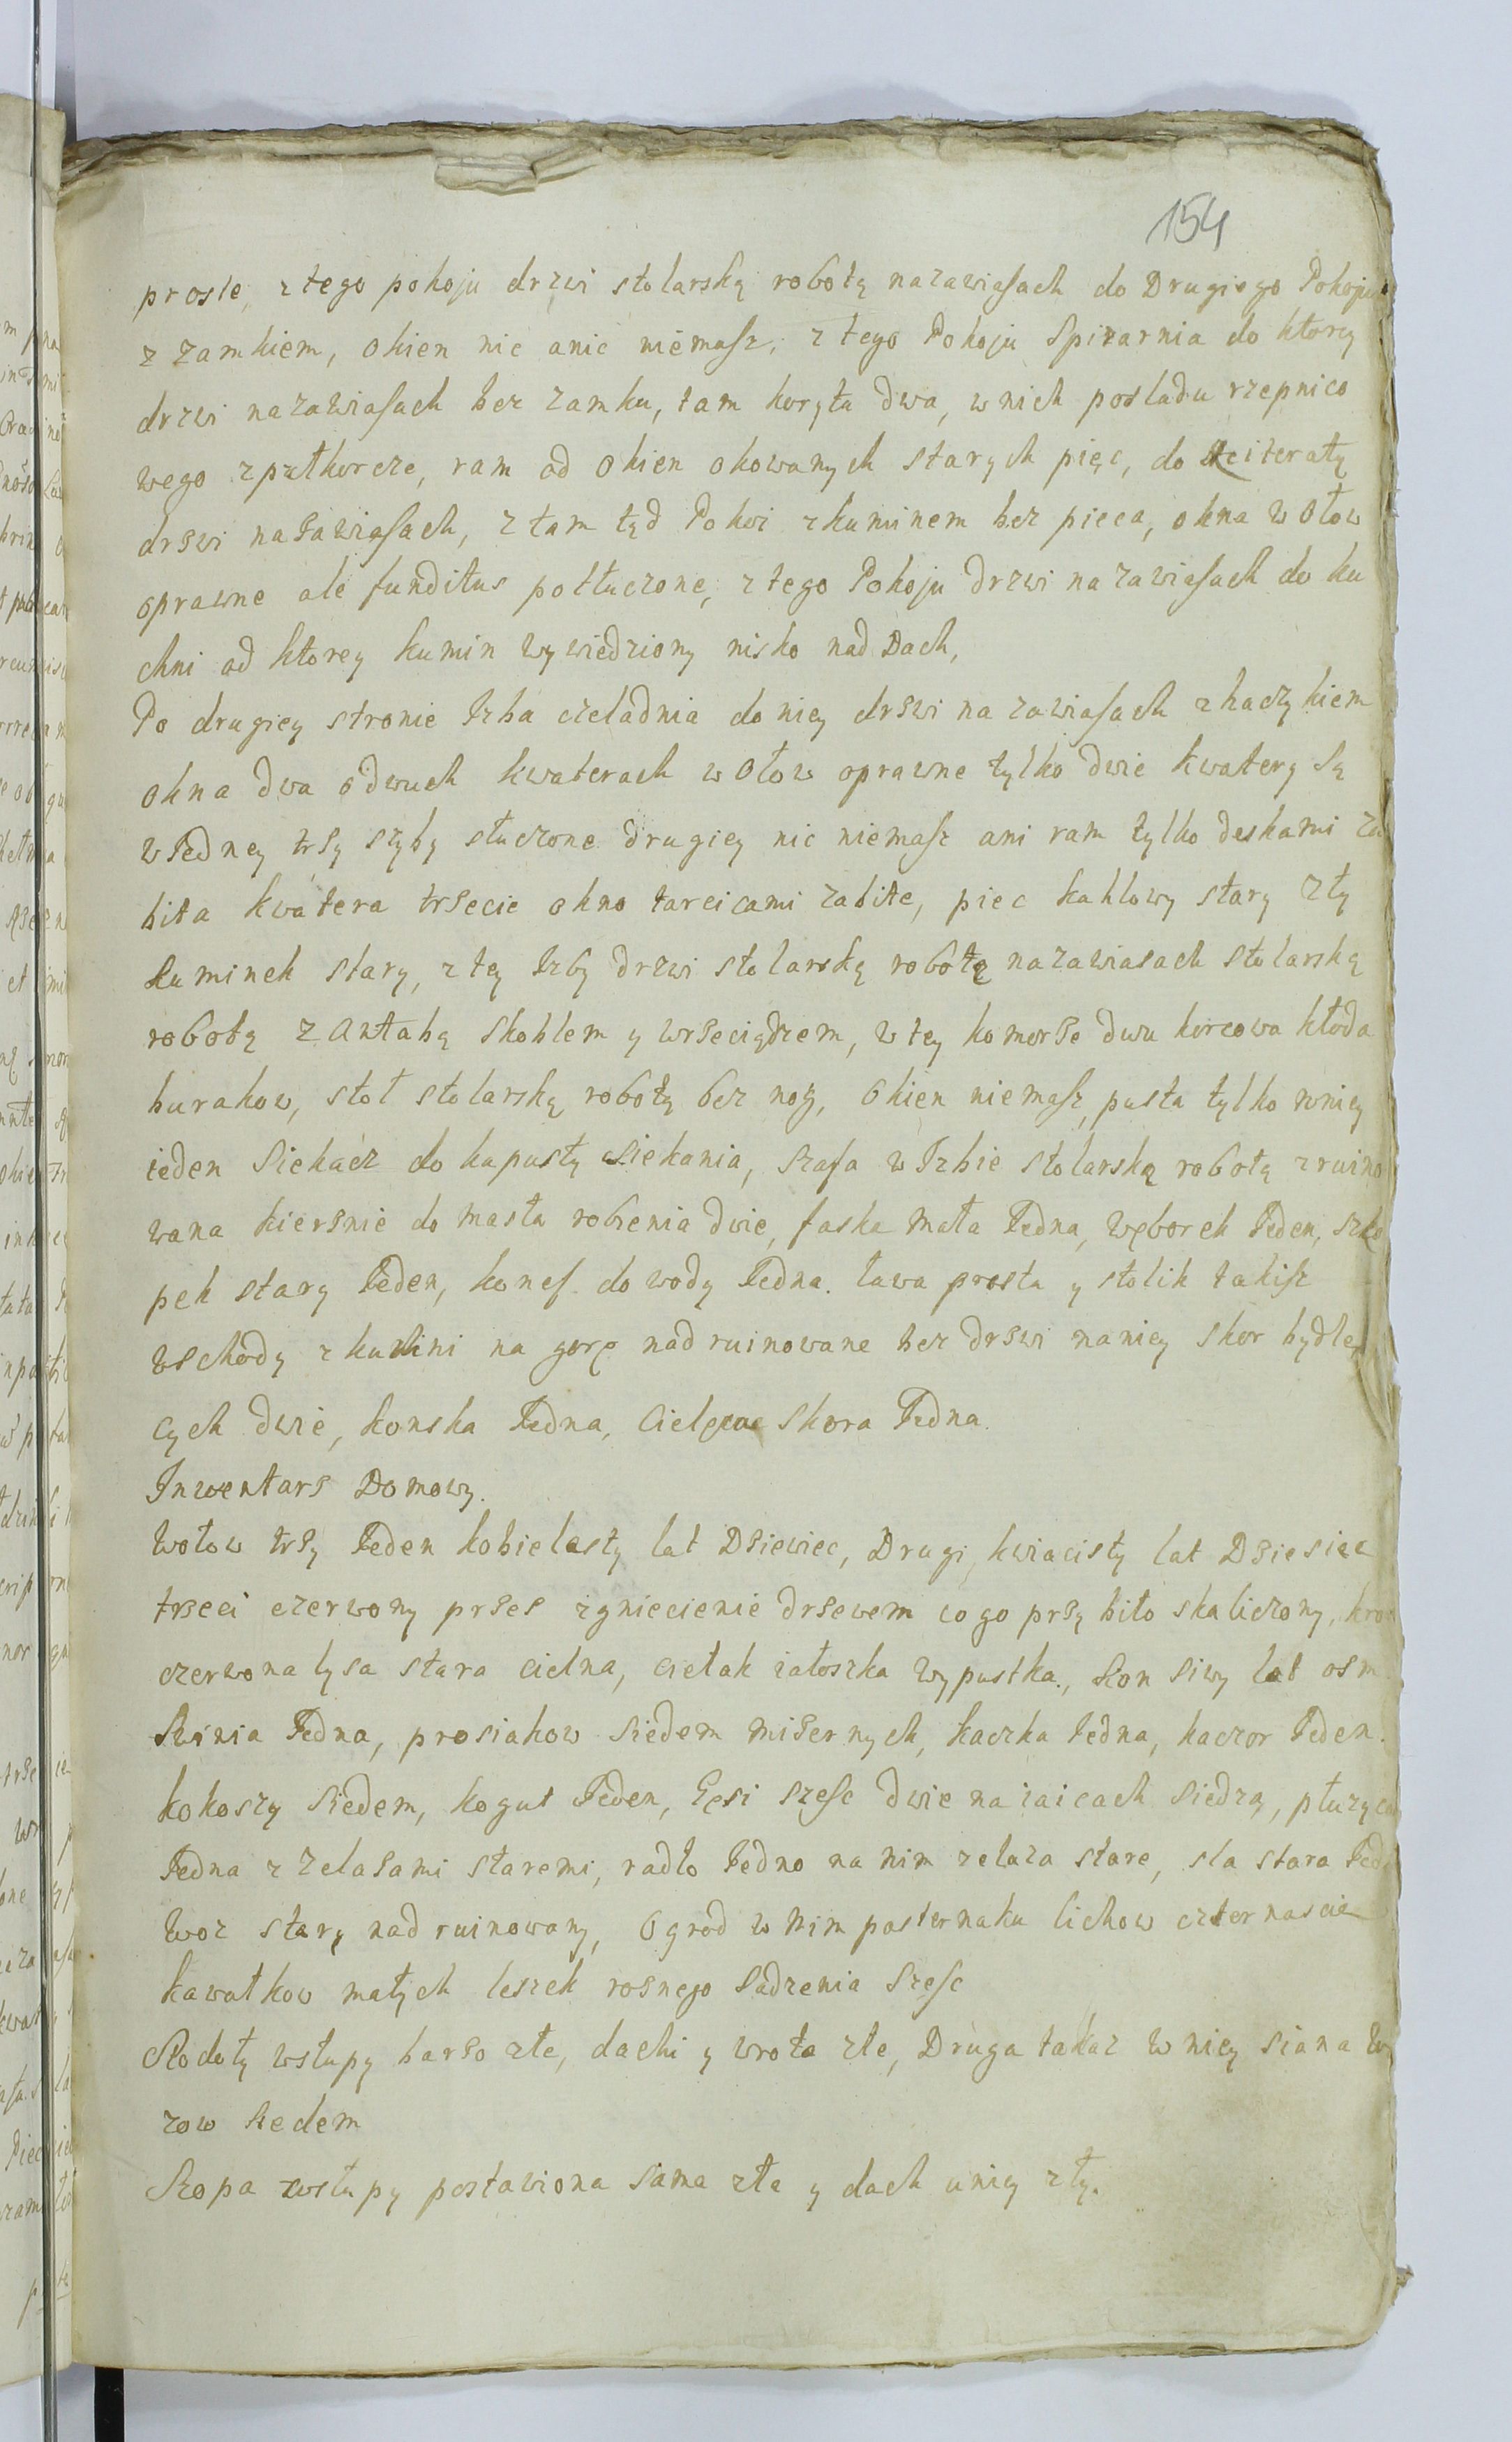 154
proste, z tego pokoju drzwi stolarską robotą na zawiasach do Drugiego Pokoju
z zamkiem, okien nic a nic niemasz, z tego Pokoju Spizarnia do ktorey
drzwi na zawiasach bez zamku, tam koryta dwa, w nich posladu rzepnico
wego z pułkorcze, ram od okien okowanych starych pięc, do
drswi na sawiasach, z tam tąd Pokoi z kuminem bez pieca, okna w ołow
oprawne ale funditus potłuczone, z tego Pokoju drzwi na zawiasach do ku
chni od ktorey kumin wywiedziony nisko nad Dach,
Po drugiey stronie Izba czeladnia do niey drswi na zawiasach z haczykiem
okna dwa o dwuch kwaterach w ołow oprawne tylko dwie kwatery są
w Iedney trsy szyby stuczone drugiey nic niemasz ani ram tylko deskami za
bita kwatera trsecie okno tarcicami zabite, piec kahlowy stary zły
kuminek stary, z tey Izby drzwi stolarską robotą na zawiasach stolarską
robotą z antabą skoblem y wrseciądzem, w tey komorse dwu korcowa kłoda
burakow, stoł stolarską robotą bez nog, okien niemasz, pusta tylko w niey
ieden siekacz do kapusty siekania, szafa w Izbie stolarską robotą zruino
wana kiersnie do masła robienia dwie, faska mała Iedna, węborek Ieden, szko
pek stary Ieden, konef do wody Iedna. ława prosta y stolik takisz
wschody z kuchni na gorę nadruinowane bez drswi na niey skor bydlę
cych dwie, konska Iedna, Cielęca skora Iedna.
Inwentars Domowy.
Wołow trsy Ieden kobielasty lat Dsiewiec, Drugi kwiacisty lat Dsiesiec
trseci czerwony prses zgniecienie drsewem co go prsy biło skaliczony, krowa
czerwona łysa stara cielna, cielak iałoszka wypustka, kon siwy lat osm
Swinia Iedna, prosiakow siedem misernych, kaczka Iedna, kaczor Ieden.
kokoszy siedem, kogut Ieden, Gęsi szesc dwie na iaicach siedzą, płuzyca
Iedna z zelasami staremi, radło Iedno na nim zelaza stare, sla stara Ied
Woz stary nadruinowany, Ogrod w nim pasternaku lichow czternascie
kawałkow małych leszek rosnego sadzenia szesc
Stodoły wsłupy barso złe, dachi y wrota złe, Druga takaz w niey siana wo
zow siedem
Szopa wsłupy postawiona sama zła y dach u niey zły.